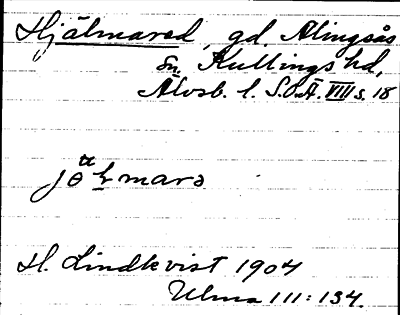 Hjälmared, gd, Alingsås
sn, Kullings hd,
Älvsb. l. S.O.Ä. VIII s. 18
H. Lindkvist 1904
Ulma 111:134.